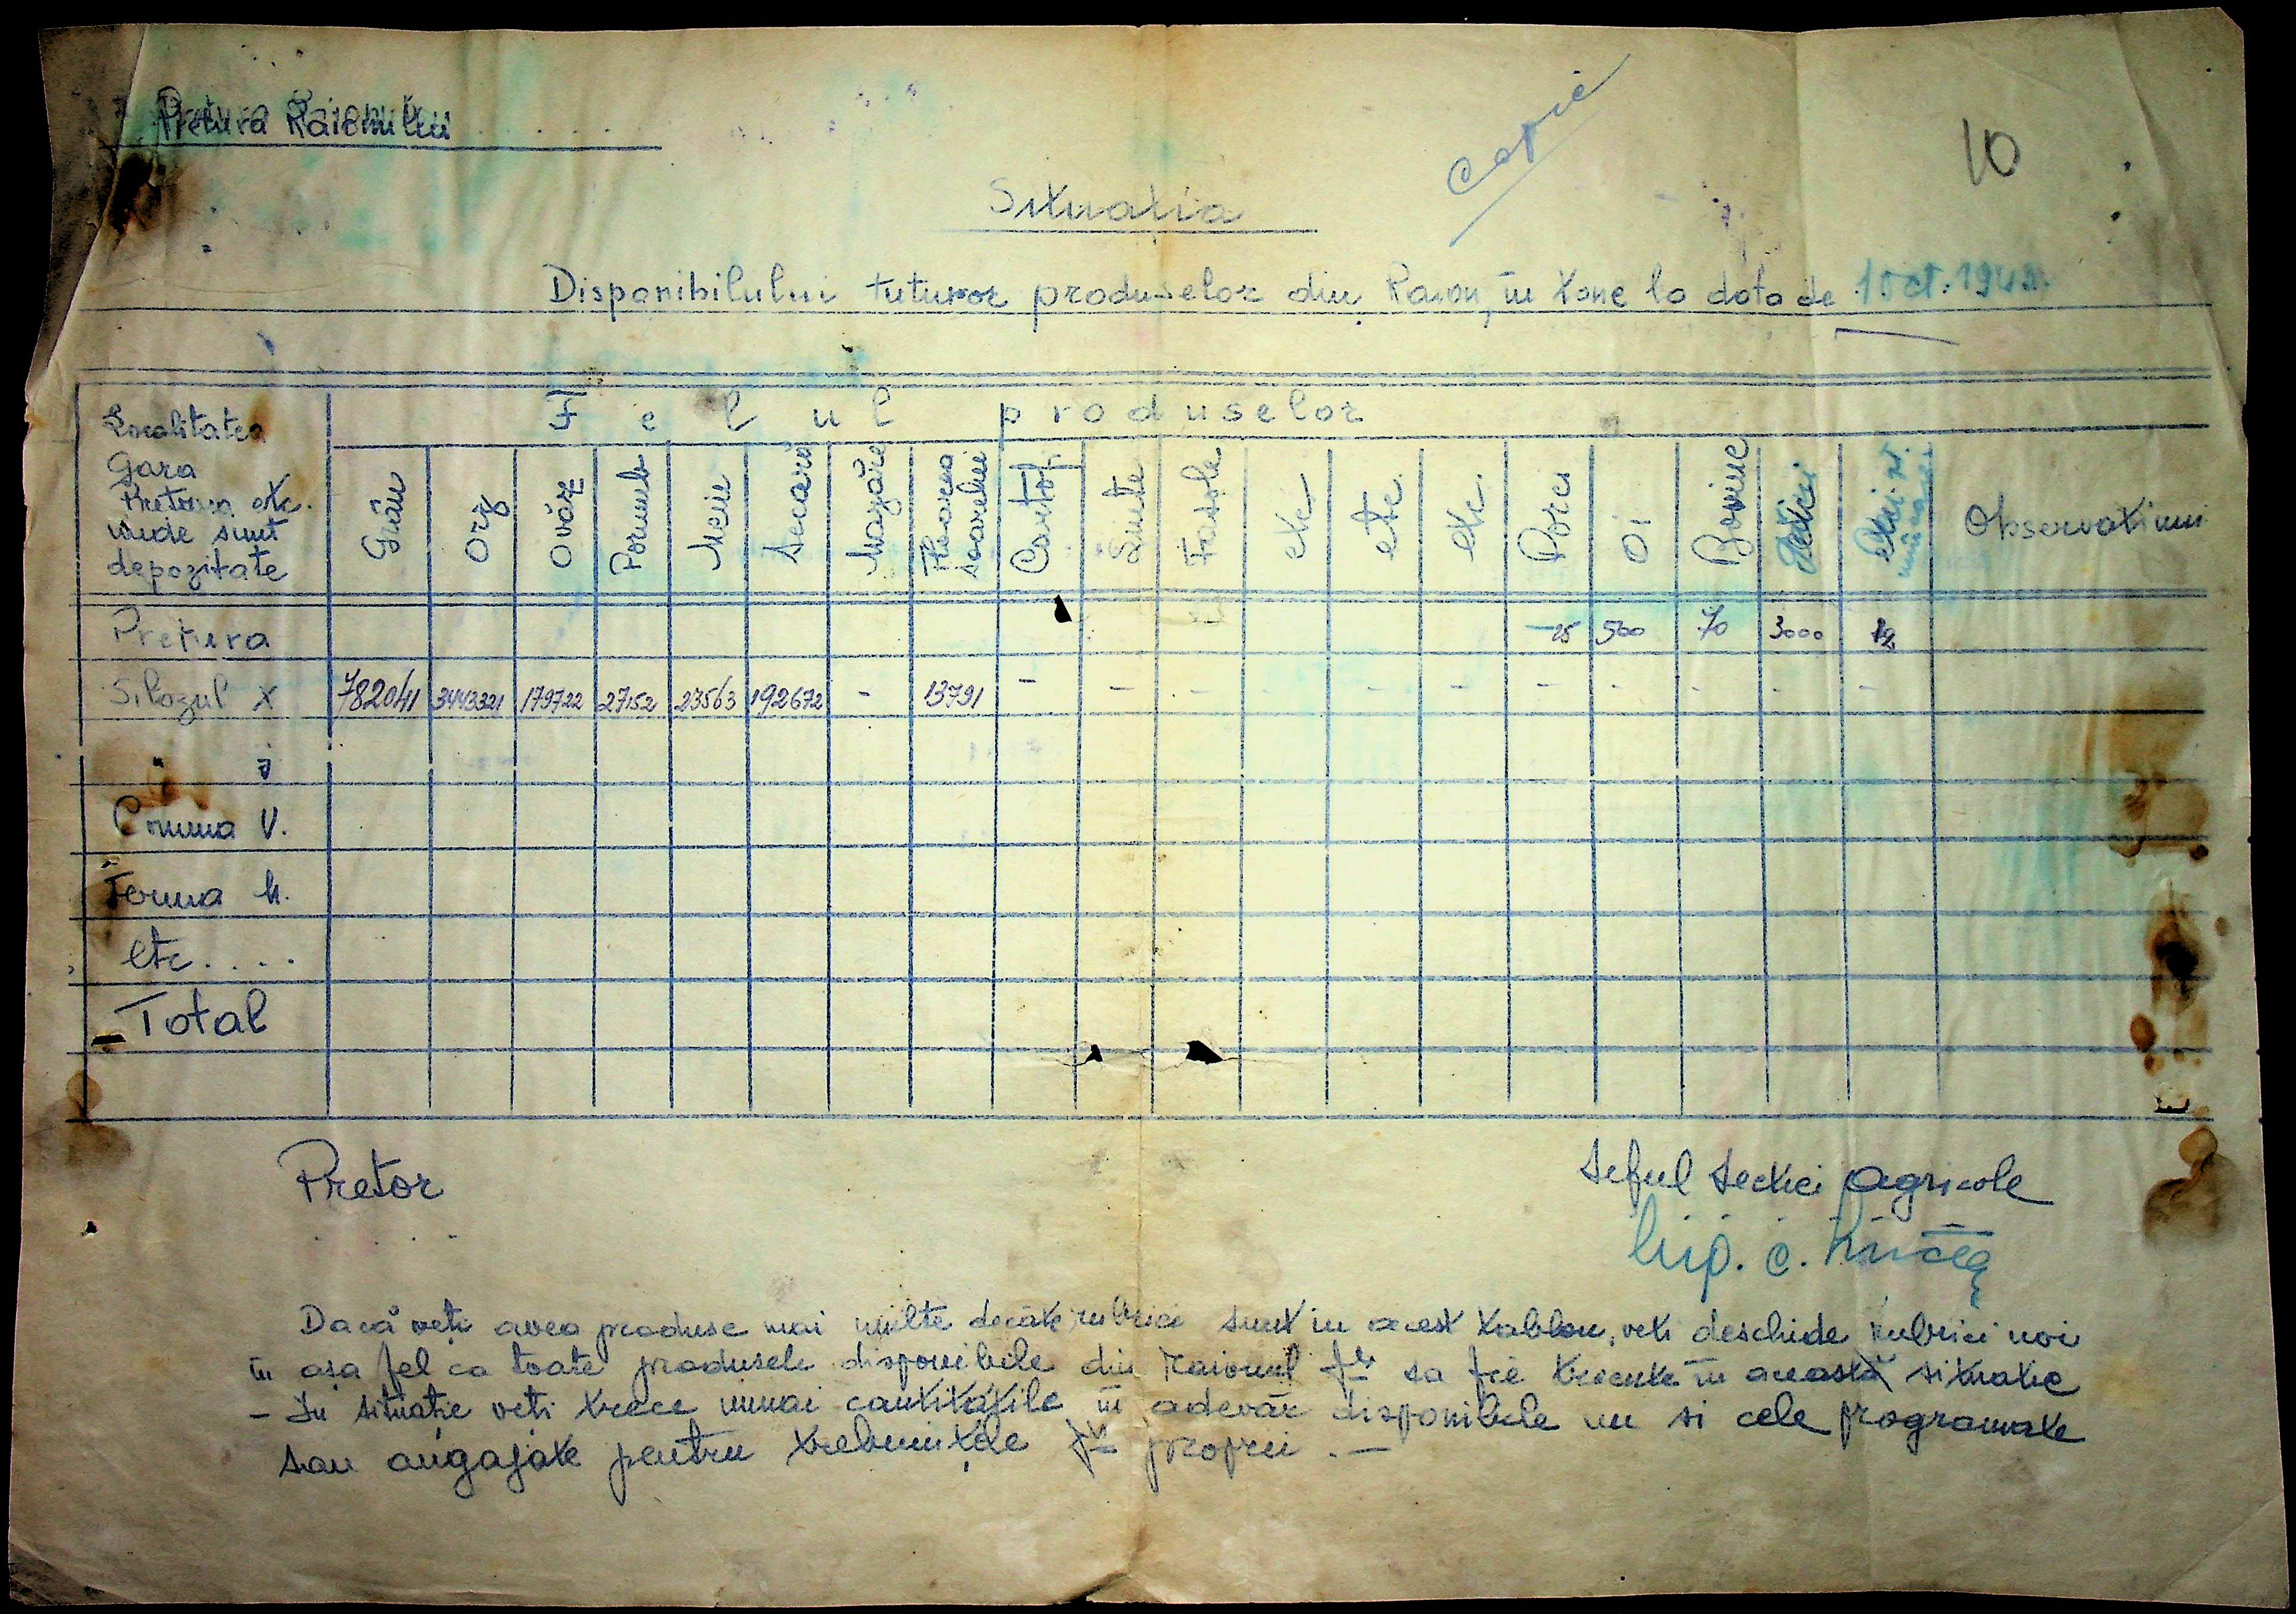 Pretura Raionului . . . .
copie
10
Situatia
Disponibilului tuturor produselor din Raion, in tone la data de 1 Oct. 1942.
Localitatea
Gara
Pretura etc.
unde sunt
depozitate
Felul produselor
Grâu
Orz
Ovăz
Porumb
Meiu
Secară
Mazăre
Floarea soarelui
Cartofi
Linte
Fasole
etc
etc.
etc.
Porci
Oi
Bovine
Observatiuni
Pretura 25 500 70 3000 12
Silozul X 782041 3443321 179722 27152 23563 192672 - 13791 - - - - - - - - - - -
"
Comuna V.
Ferma M.
etc. . . .
Total
Pretor
Seful Sectiei Agricole
. . . .
Ing. C.
Dacă veti avea produse mai multe decât rubrici sunt in acest tablou, veti deschide rubrici noi
in asa fel ca toate produsele disponibile din raionul să fie trecute in această situatie
- In situatie veti trece numai cantitătile in adevăr disponibile nu si cele programate
sau angajate pentru trebuintele proprii . -